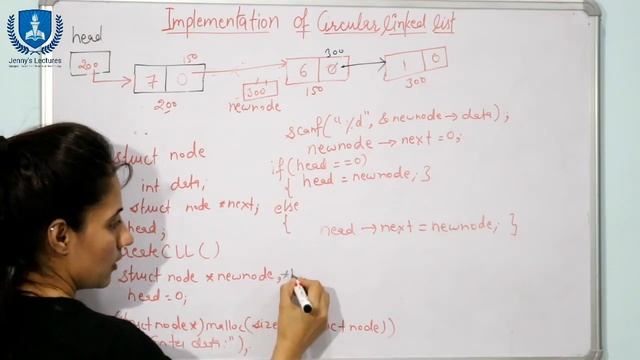 Jenny's Lectures
Implementation of Circular linked list
head
200
7 0
150
200
newnode
300
6 0
300
150
1 0
300
scanf("%d", &newnode→data);
newnode→next=0;
struct node
if(head==0)
{ head=newnode; }
int data;
struct node *next;
else
{
head→next=newnode; }
head;
createCLL()
struct node *newnode,
head=0;
struct node*)malloc(size
ct node))
data:");